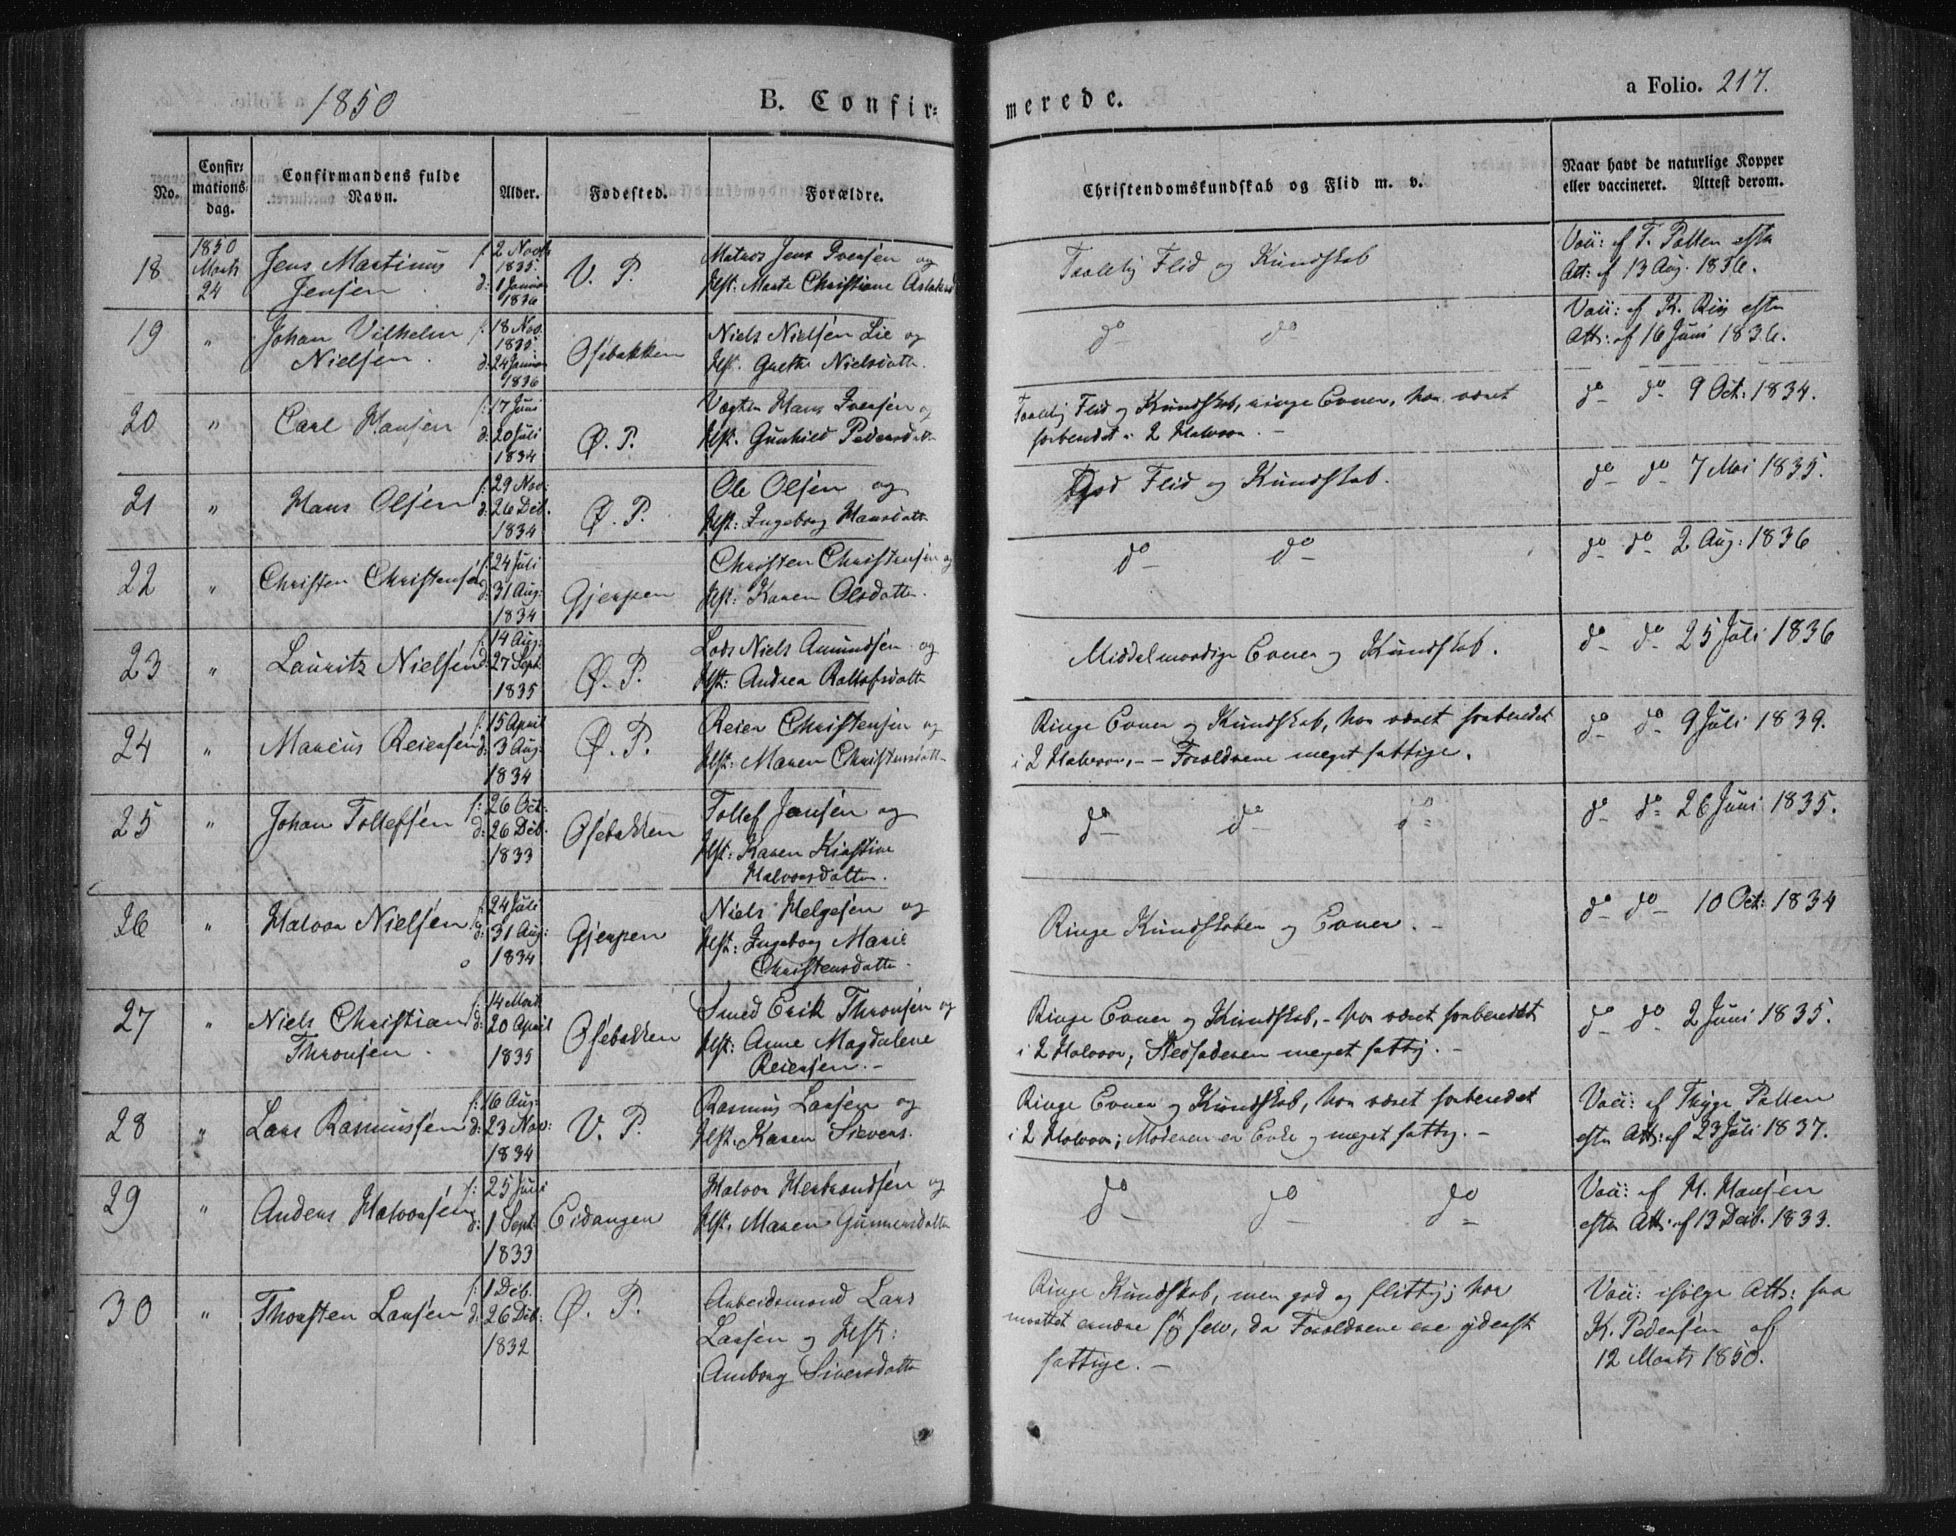 1850
B. Confir=
merede.
a Folio. 217.
No.
Confir=
mations=
dag.
Confirmandens fulde
Navn.
Alder.
Fødested.
Forældre.
Christendomskundskab og Flid m. v.
Naar havt de naturlige Kopper
eller vaccineret. Attest derom.
18
1850
Marts
24
Jens Martinus
Jensen
f: 2 Novb
1835.
d: 1 Januar
1836
V. P.
Matros Jens Iversen og
Hst: Marte Christiane
Taalelig Flid og Kundskab
Vacc: af T. Patten efter
Att: af 13 Aug. 1836.
19
"
Johan Vilhelm
Nielsen.
f: 18 Nov.
1835
d: 24 Januar
1836
Osebakken
Niels Nielsen Lie og
Hst. Grethe Nielsdatt.
do do
Vacc: af K. Riis efter
Att: af 16 Juni 1836.
20
"
Carl Hansen
f: 17 Juni
d: 20 Juli
1834
Ø. P.
Vægter Hans Iversen og
Hst. Gunhild Pedersdatt
Taalelig Flid og Kundskab, ringe Evner, har været
forberedet i 2 Halvaar. -
do do 9 Oct: 1834.
21
"
Hans Olsen
f: 29 Nov:
d: 26 Deb.
1834
Ø. P.
Ole Olsen og
Hst: Ingeborg Hansdatt
God Flid og Kundskab.
do do 7 Mai 1835.
22
"
Christen Christensen
f: 24 Juli
d: 31 Aug:
1834
Gjerpen
Christen Christensen og
Hst: Karen Olsdatter.
do do
do do 2 Aug: 1836
23
"
Lauritz Nielsen
f: 14 Aug:
d: 27 Sept.
1835
Ø. P.
Lods Niels Amundsen og
Hst: Andrea Rollofsdatte
Middelmaadige Evner og Kundskab.
do do 25 Juli 1836
24
"
Marcus Reiersen
f: 15 April
d: 3 Aug:
1834
Ø. P.
Reier Christensen og
Hst: Maren Christensdatt
Ringe Evner og Kundskab, har været forberedet
i 2 Halvaar. - - Forældrene meget fattige.
do do 9 Juli 1839.
25
"
Johan Tollefsen
f: 26 Oct:
d: 26 Deb.
1833
Osebakken
Tollef Jansen og
Hst: Karen Kirstine
Halvorsdatter.
do do do
do do 26 Juni 1835.
26
"
Halvor Nielsen
f: 24 Juli
d: 31 Aug:
1834
Gjerpen
Niels Helgesen og
Hst: Ingeborg Marie
Christensdatte.
Ringe Kundskaber og Evner. -
do do 10 Oct: 1834
27
"
Niels Christian
Thronsen.
f: 14 Marts
d: 20 April
1835
Osebakken
Smed Erik Thronsen og
Hst: Anne Magdalene
Reiersen. -
Ringe Evner og Kundskab, - har været forberedet
i 2 Halvaar, Stedfaderen meget fattig. -
do do 2 Juni 1835.
28
"
Lars Rasmussen
f: 16 Aug:
d: 23 Nov:
1834
V. P.
Rasmus Larsen og
Hst: Karen Sievers.
Ringe Evner og Kundskab, har været forberedet
i 2 Halvaar; Moderen er Enke og meget fattig. -
Vacc: af Thyge Patten
efter Att: af 23 Juli 1837.
29
"
Anders Halvorsen
f: 25 Juli
d: 1 Sept:
1833
Eidangen
Halvor Herbrandsen og
Hst. Maren Gunnersdatte
do do do
Vacc: af H. Hansen
efter Att: af 13 Deib. 1833.
30
"
Thorsten Larsen
f: 1 Deb.
d: 26 Deb:
1832
Ø. P.
Arbeidsmand Lars
Larsen og Hst:
Amborg Siversdatte
Ringe Kundskab, men god og flittig; har
maattet ernære sig selv, da Forældrene ere yderst
fattige. -
Vacc: ifølge Att: fra
K. Pedersen af
12 Marts 1850.